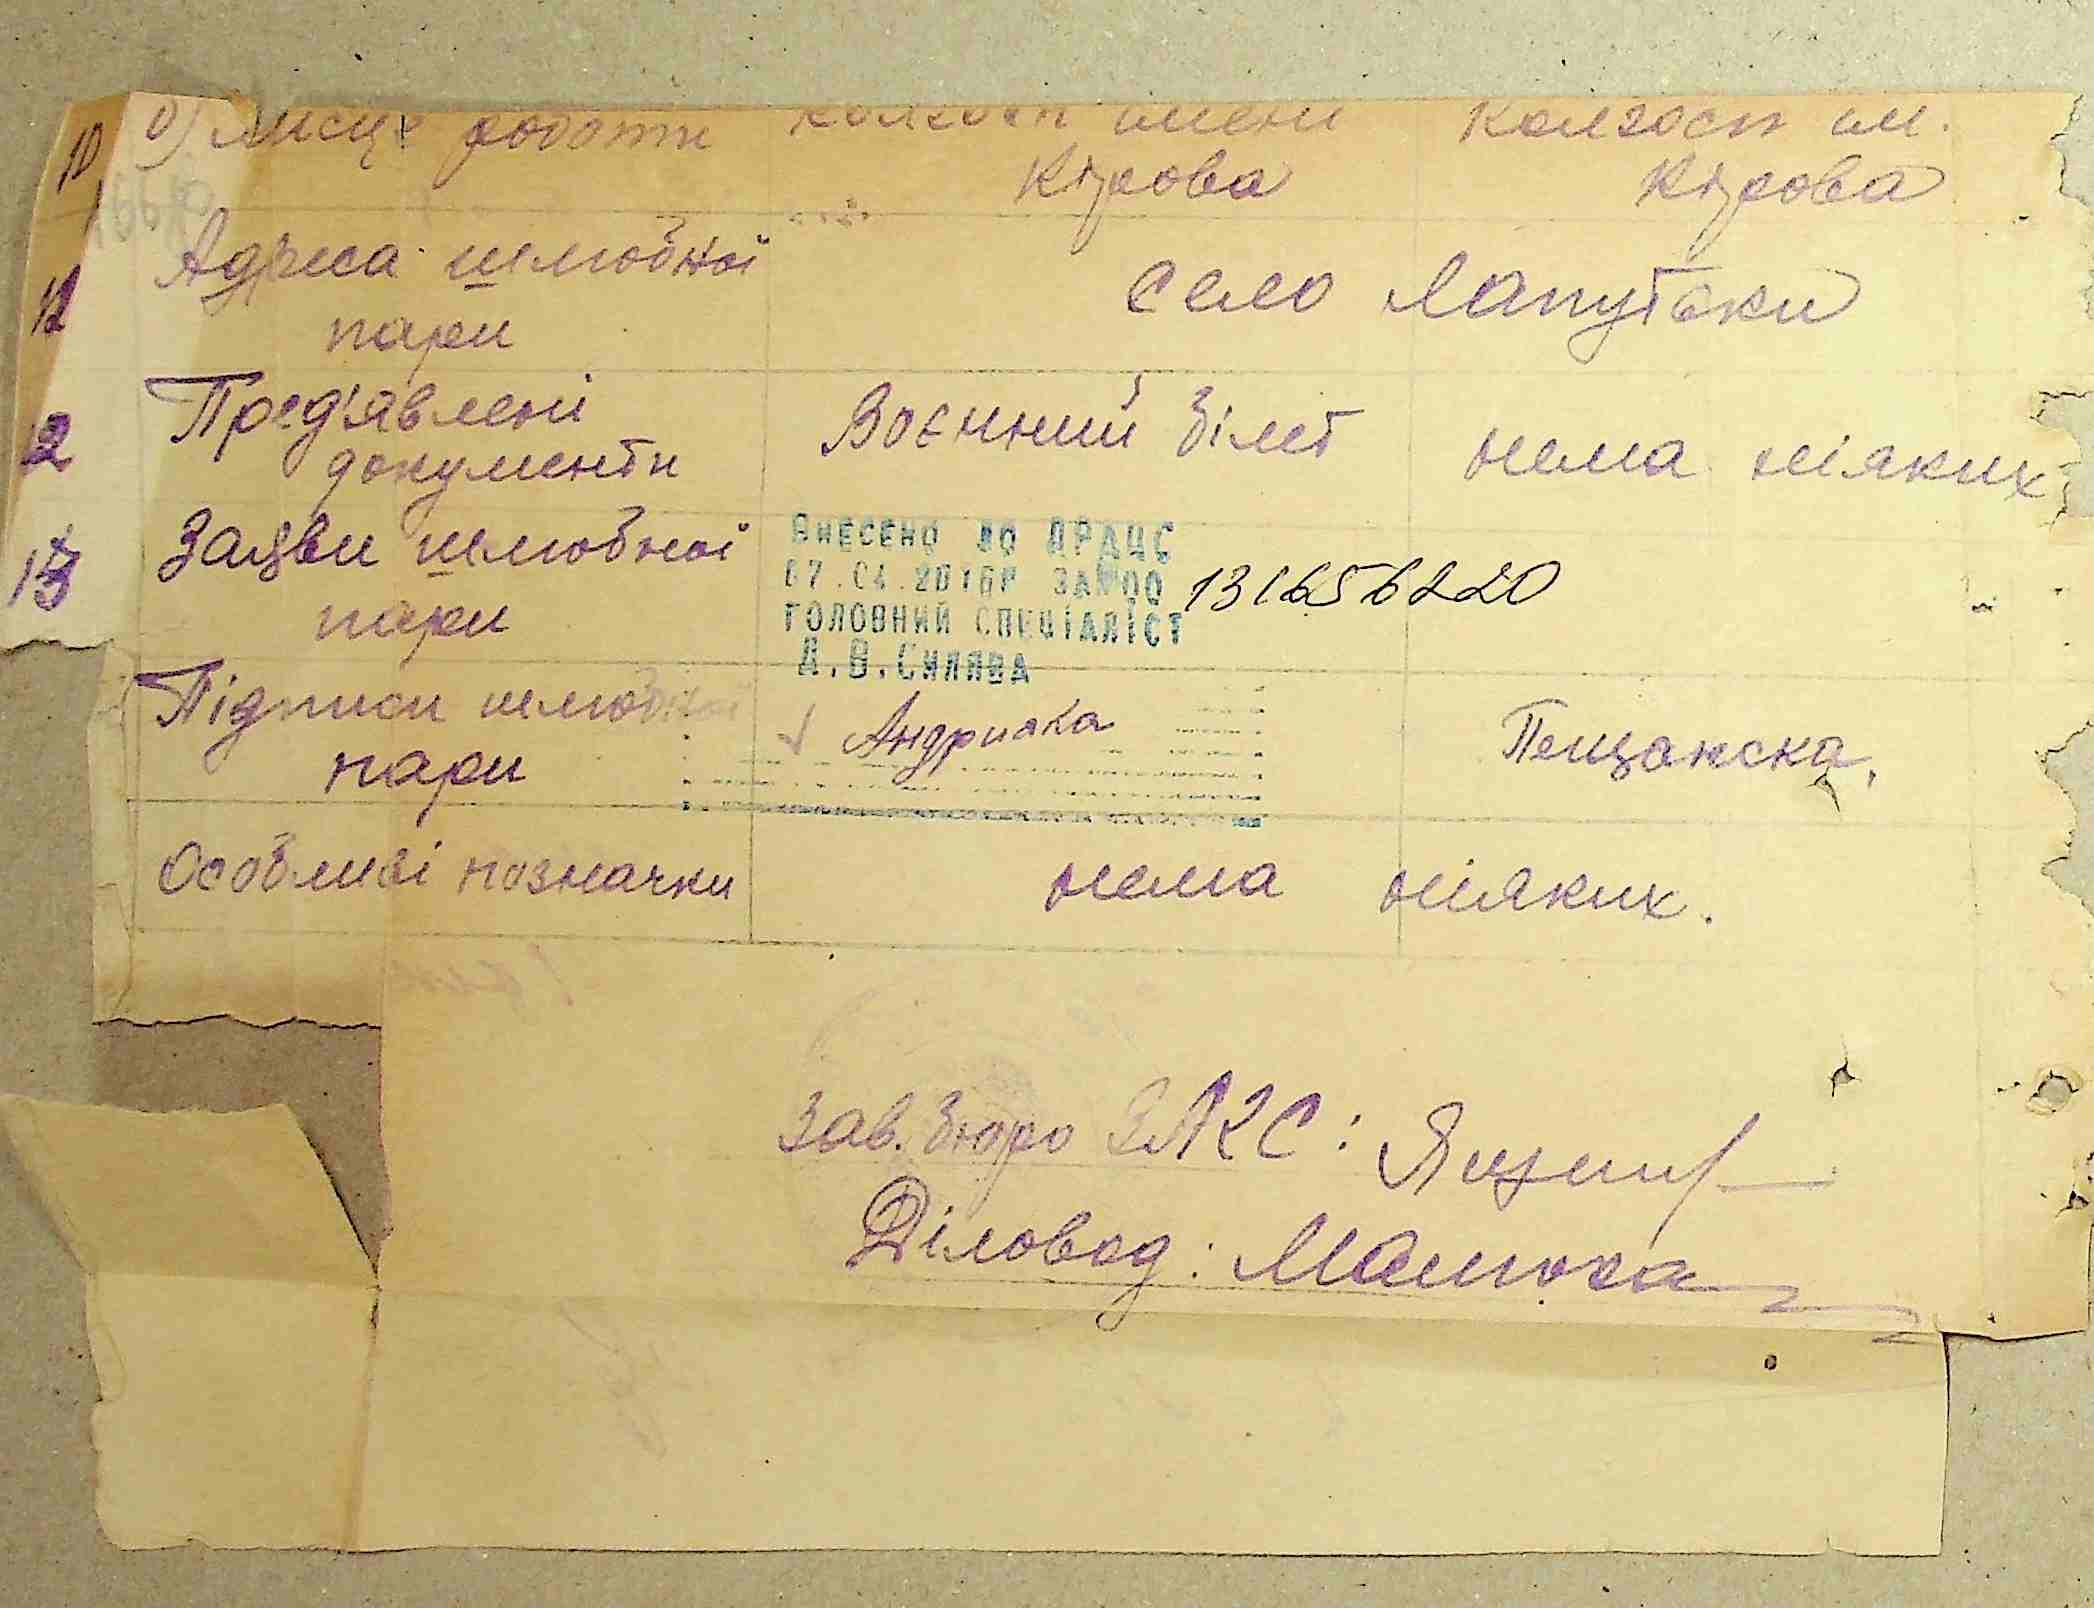 10 в) Місце роботи колгосп імени Колгосп ім.
Кірова Кірова
11 Адреса шлюбної село Лапутьки
пари
12 Пред'явлені Воєнний білет нема ніяких
документи
13 Заяви шлюбної
пари
ВНЕСЕНО ДО ДРАЦС
07.04.2016Р ЗА №00 131656220
ГОЛОВНИЙ СПЕЦІАЛІСТ
Д.В.Силява
Підписи шлюбної Андрияка Пещанска,
пари
Особливі позначки нема ніяких.
Зав. бюро ЗАГС:
Діловод: Малюха